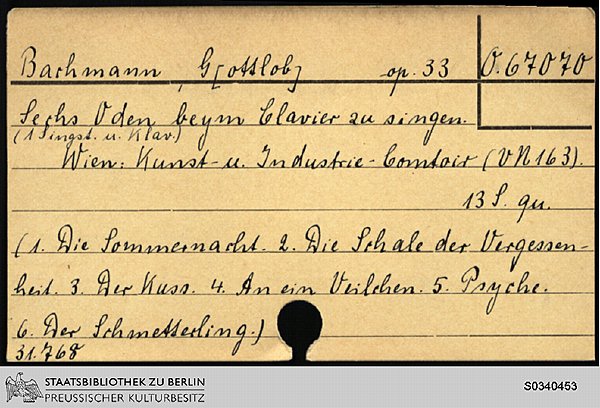 Bachmann, G[ottlob] op. 33 O.67070
Sechs Oden beym Clavier zu singen.
(1 Singst. u. Klav.)
Wien: Kunst- u. Industrie-Comtoir (VN 163).
13 S. qu.
(1. Die Sommernacht. 2. Die Schale der Vergessen-
heit. 3. Der Kuss. 4. An ein Veilchen. 5. Psyche.
6. Der Schmetterling.)
31.768
STAATSBIBLIOTHEK ZU BERLIN
PREUSSISCHER KULTURBESITZ
S0340453